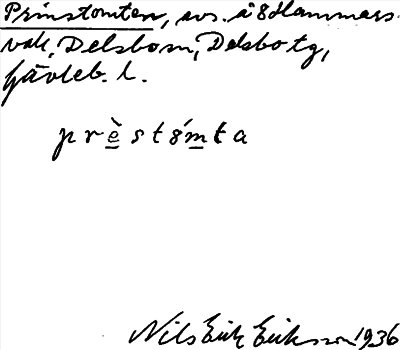 Prinstomten, avs. å 8 Hammars-
vall, Delsbo sn, Delsbo tg,
Gävleb. l.
prèstómta
Nils Erik Eriksson 1936